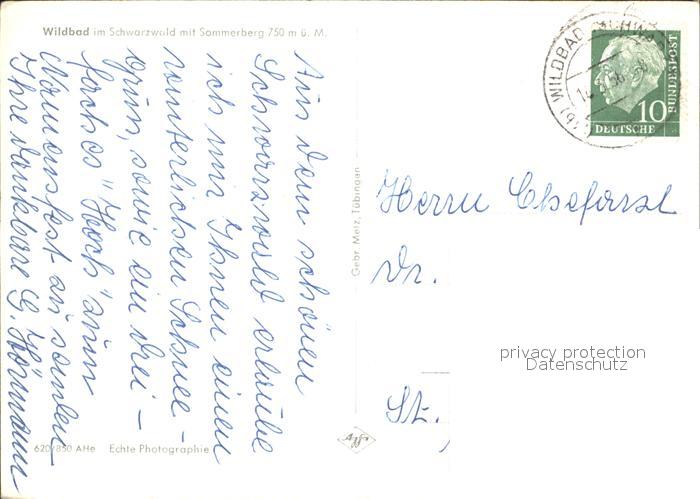 Wildbad im Schwarzwald mit Sommerberg 750 m ü. M.
Aus dem schönen
Schwarzwald erlaube
ich mir Ihnen einen
winterlichen Schnee-
grüß, sowie ein drei-
faches "Hoch" zum
Namensfest zu senden
Ihre dankbare G. Hörmann
620/850 AHe Echte Photographie
Gebr. Metz, Tübingen
Agfa
WILDBAD SCHWARZW
10
DEUTSCHE
BUNDESPOST
Herrn Chefarzt
Dr.
privacy protection
Datenschutz
St.